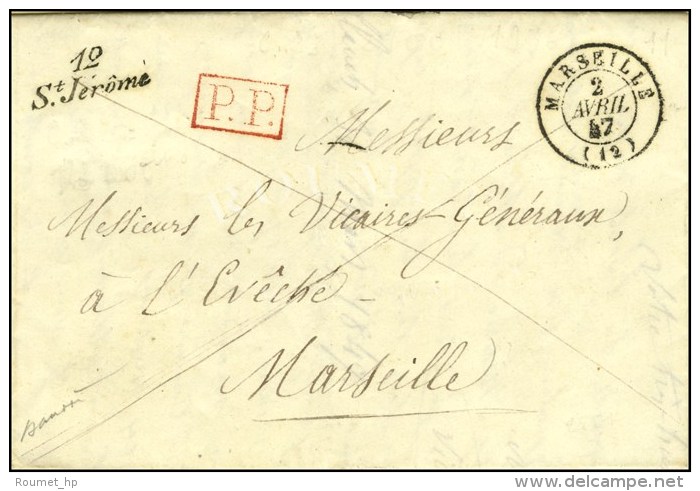 12
St Jérôme
P.P.
MARSEILLE
2
AVRIL
47
(12)
Messieurs
Messieurs les Vicaires Généraux,
à l'Evêché
Marseille
Roumet_hp
delcampe.net